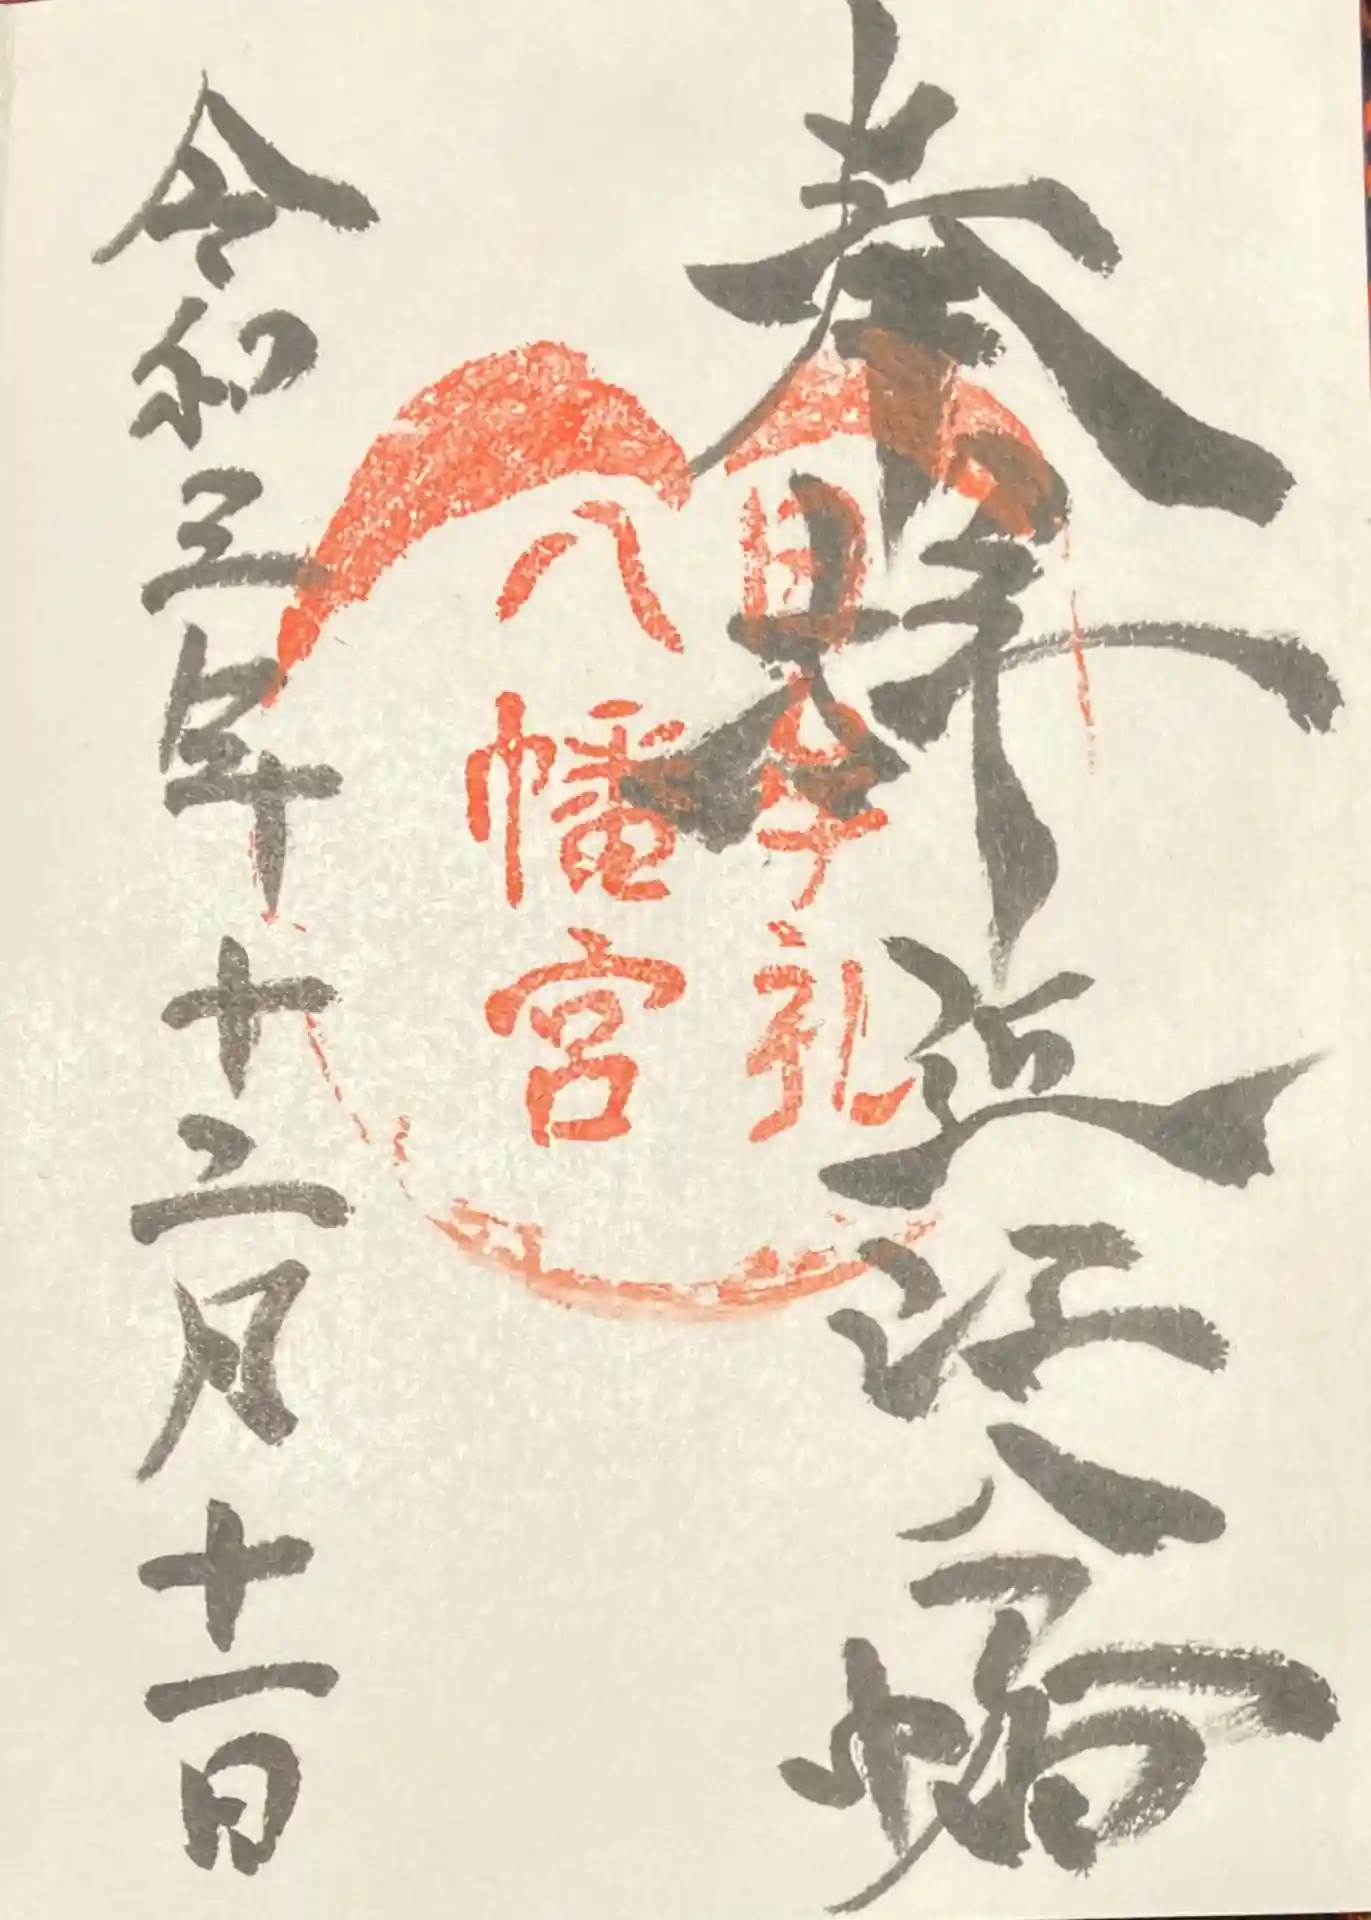 奉拝 近江八幡
日牟禮
八幡宮
令和三年十二月十一日